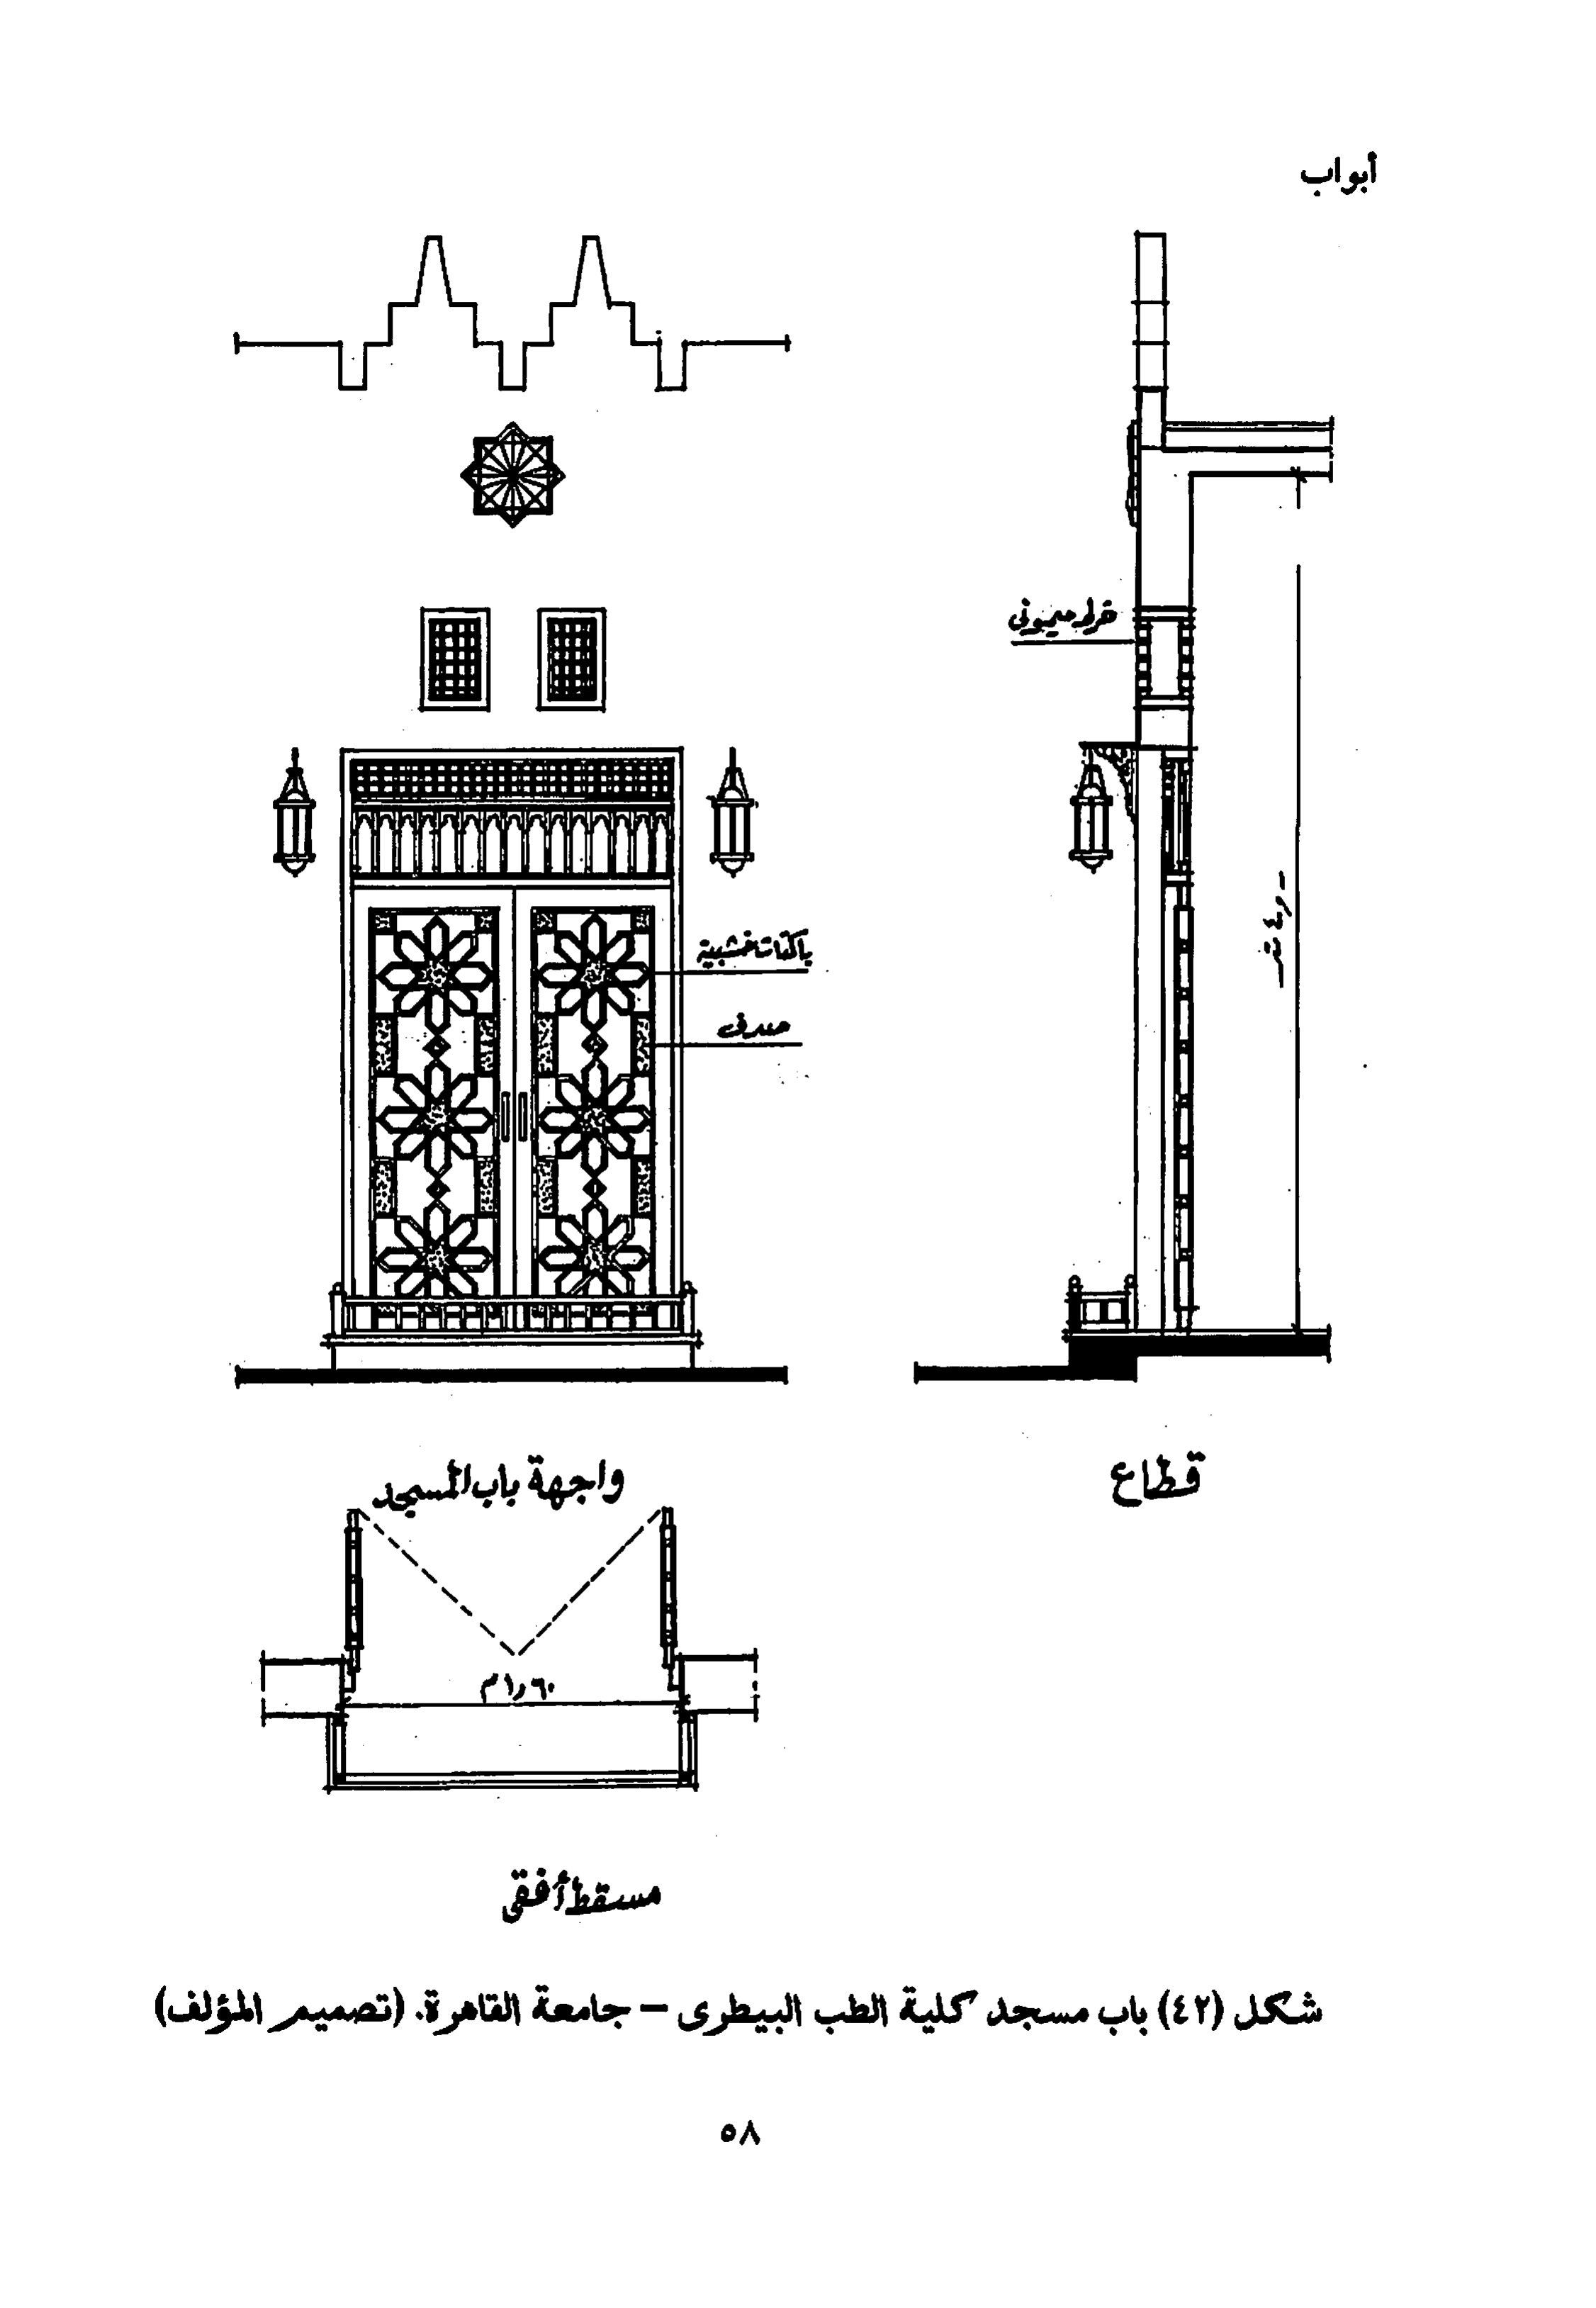 أبواب
خرط ميموني
باكتات خشبية
صدف
٤٫٠٠ متر
واجهة باب المسجد
قطاع
١٫٦٠ م
مسقط أفقى
شكل (٤٢) باب مسجد كلية الطب البيطرى – جامعة القاهرة. (تصميم المؤلف)
٥٨